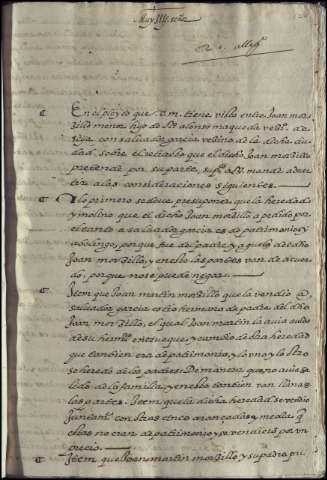 Muy Ille. señor
En el pleyto que V.m. tiene visto entre Joan mor
zillo menor hijo de
cija con salvador garcia vezino de la dicha ciu
dad sobre el retracto que el dicho Joan morzillo
pretende por su parte, suppco a V.m. mande adver
tir a las consideraciones siguientes.
Lo primero se deve presuponer que la heredad
y molino que el dicho Joan morzillo a pedido por
el tanto a salvador garcia es de patrimonio y
abolengo, porque fue del padre y aguelo del dho
Joan morzillo, y en ello las partes van de acuer
do, porque no se puede negar.
Item que Joan martin morzillo que la vendio a
salvador garcia es tio hermano de padre del dho
Joan morzillo, el qual Joan martin la avia avido
de su hermo. en trueque, y cambio de otra heredad
que tanbien era de patrimonio, y lo uno y lo otro
se heredo de los padres. De manera que no avia sa
lido de la familia, y en ello tanbien van llanas
las partes. Item, que la dicha heredad se vendio
juntamte. con otras cinco arançadas, y media q
estas no eran de patrimonio y se vendieron por un
precio.
Item que Joan martin morzillo, y su padre pri